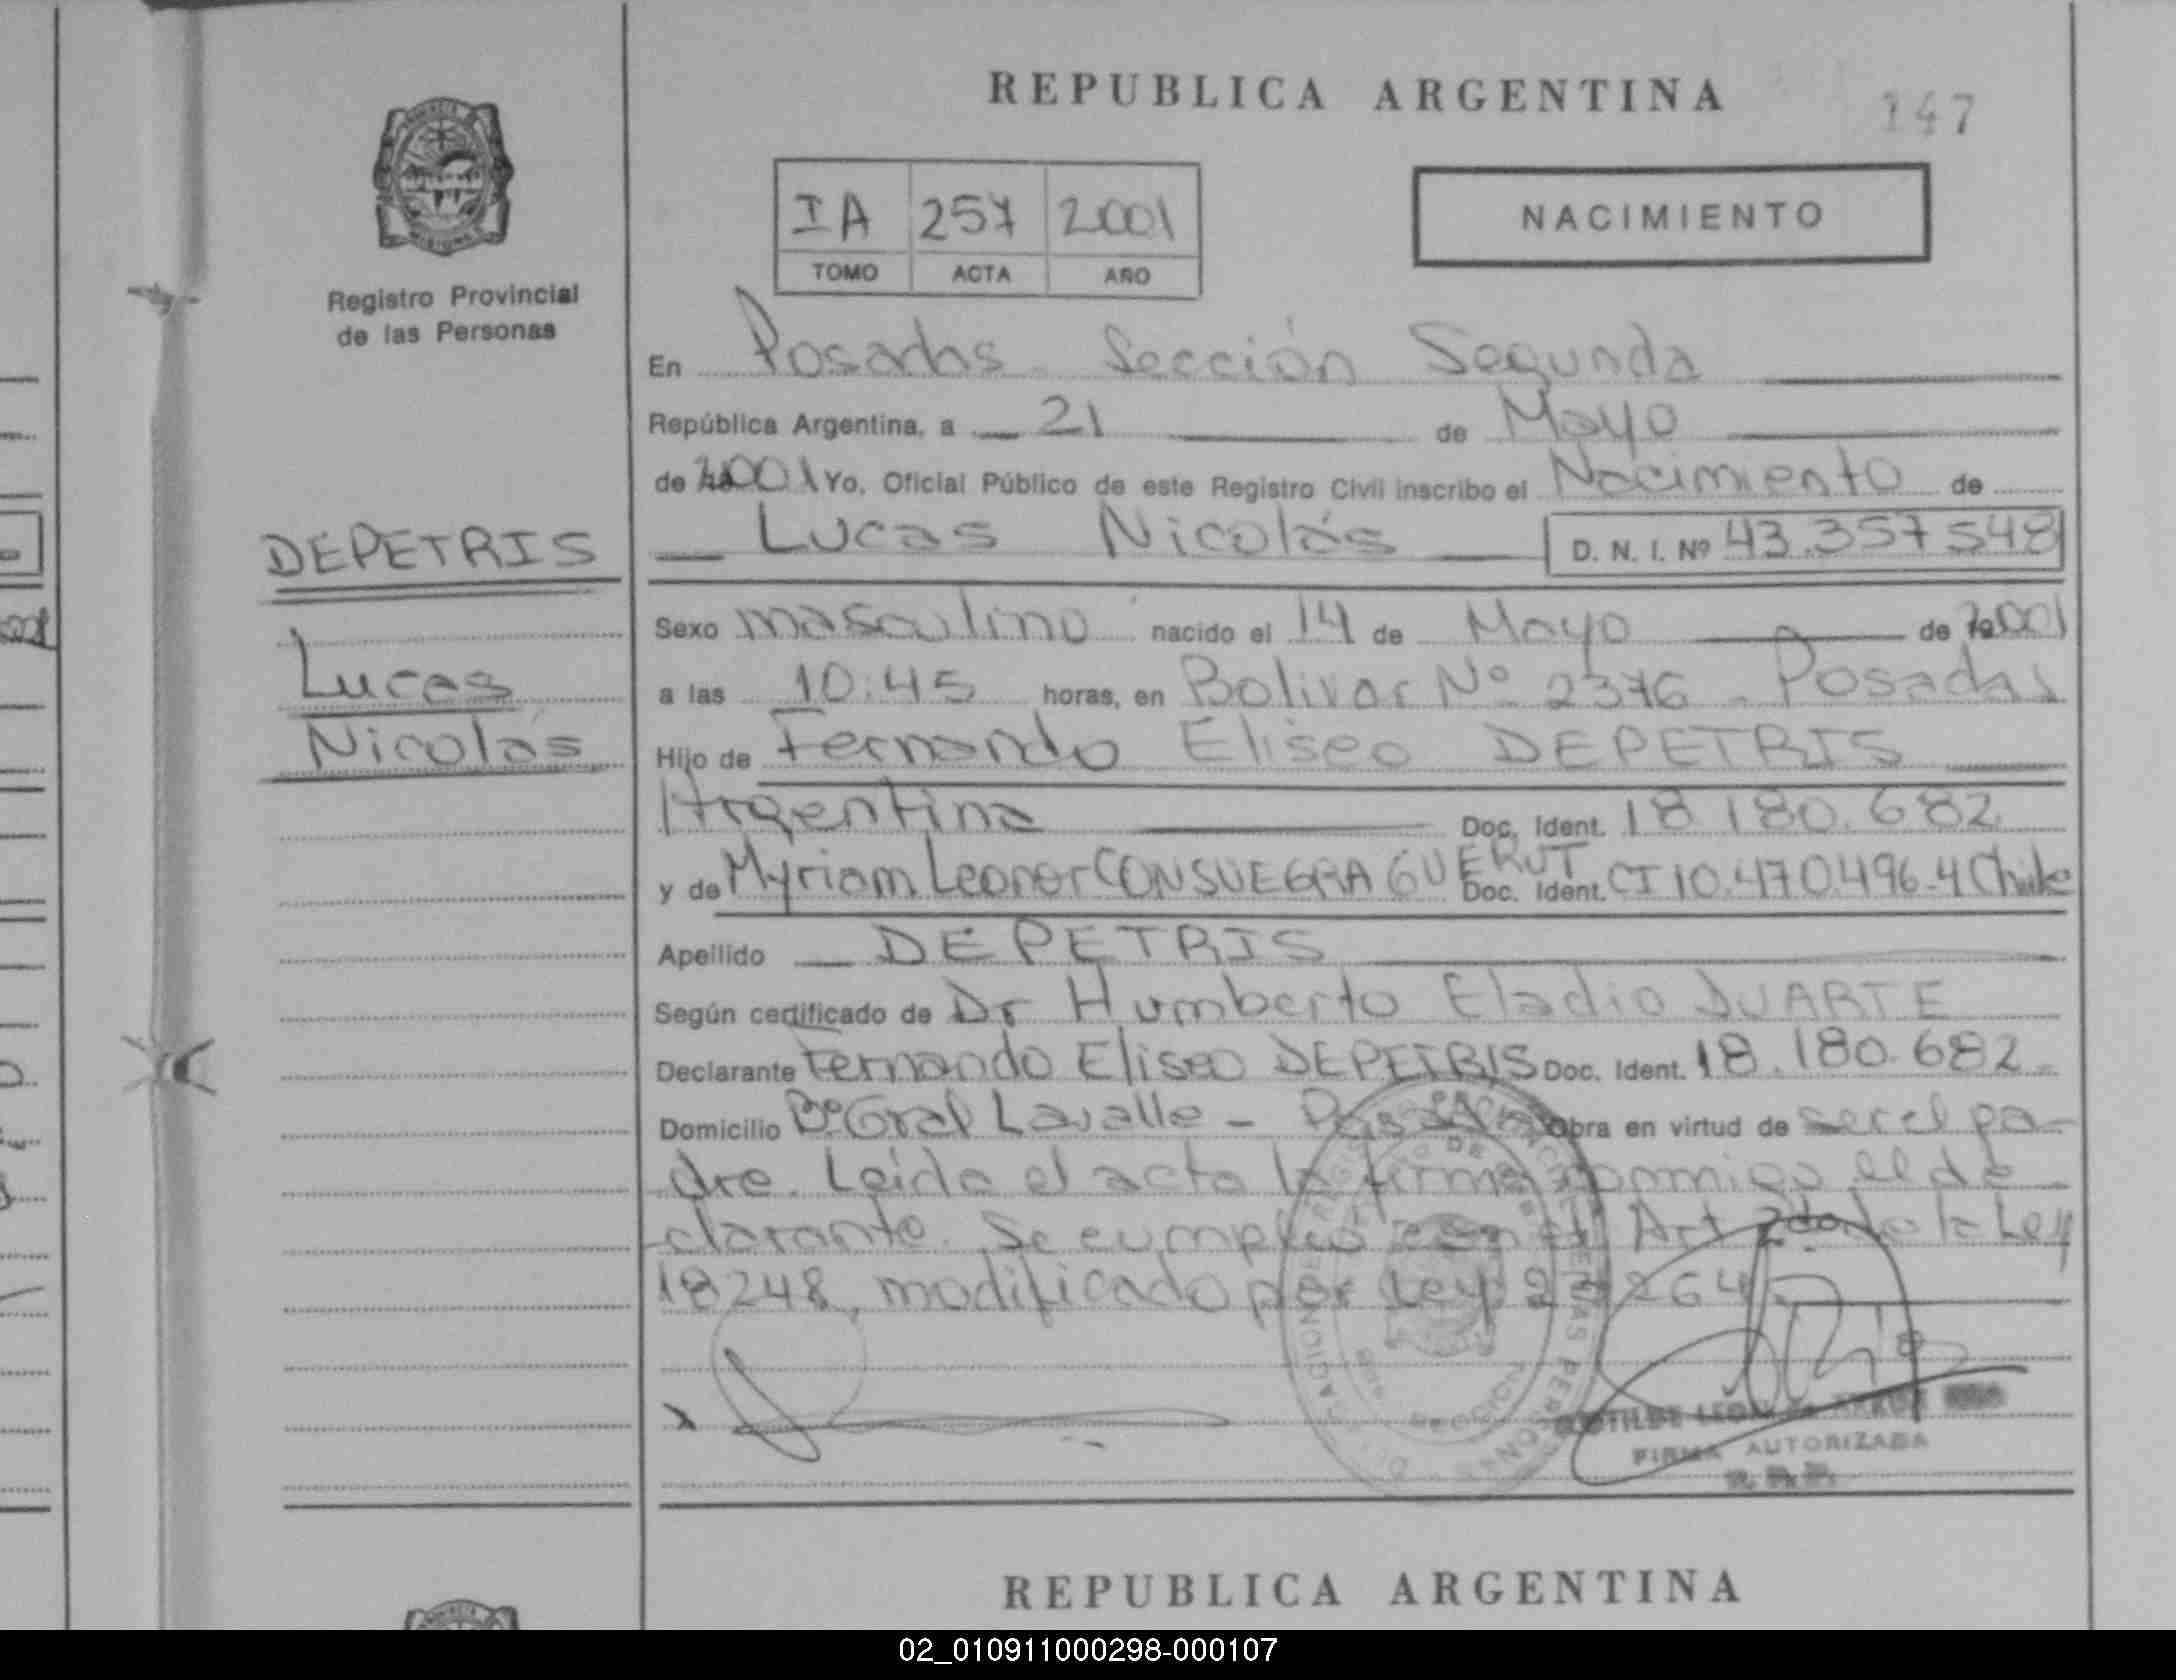 REPUBLICA ARGENTINA
147
IA 257 2001
TOMO ACTA AÑO
NACIMIENTO
Registro Provincial
de las Personas
DEPETRIS
Lucas
Nicolás
En Posadas Sección Segunda
República Argentina, a 21 de Mayo
de 2001 Yo, Oficial Público de este Registro Civil inscribo el Nacimiento de
Lucas Nicolás D. N. I. Nº 43.357548
Sexo masculino nacido el 14 de Mayo de 2001
a las 10:45 horas, en Bolivar Nº 2376 - Posadas
Hijo de Fernando Eliseo DEPETRIS
Argentina Doc. Ident. 18 180.682
y de Myriam Leonor CONSUEGRA GUERUT Doc. Ident. CI 10.470.496-4 Chile
Apellido DEPETRIS
Según certificado de Dr Humberto Eladio DUARTE
Declarante Fernando Eliseo DEPETRIS Doc. Ident. 18.180.682
Domicilio Bº Gral Lavalle - Posadas Obra en virtud de ser el pa-
dre. Leída el acta la firma conmigo el de
clarante. Se cumplió con el Art 2do de la Ley
18248, modificado por Ley 23264
FIRMA AUTORIZADA
REPUBLICA ARGENTINA
02_010911000298-000107